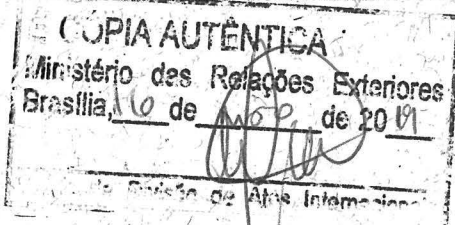 CÓPIA AUTÊNTICA
Ministério das Relações Exteriores
Brasília, 16 de de 20
da Divisão de Atos Internacionais